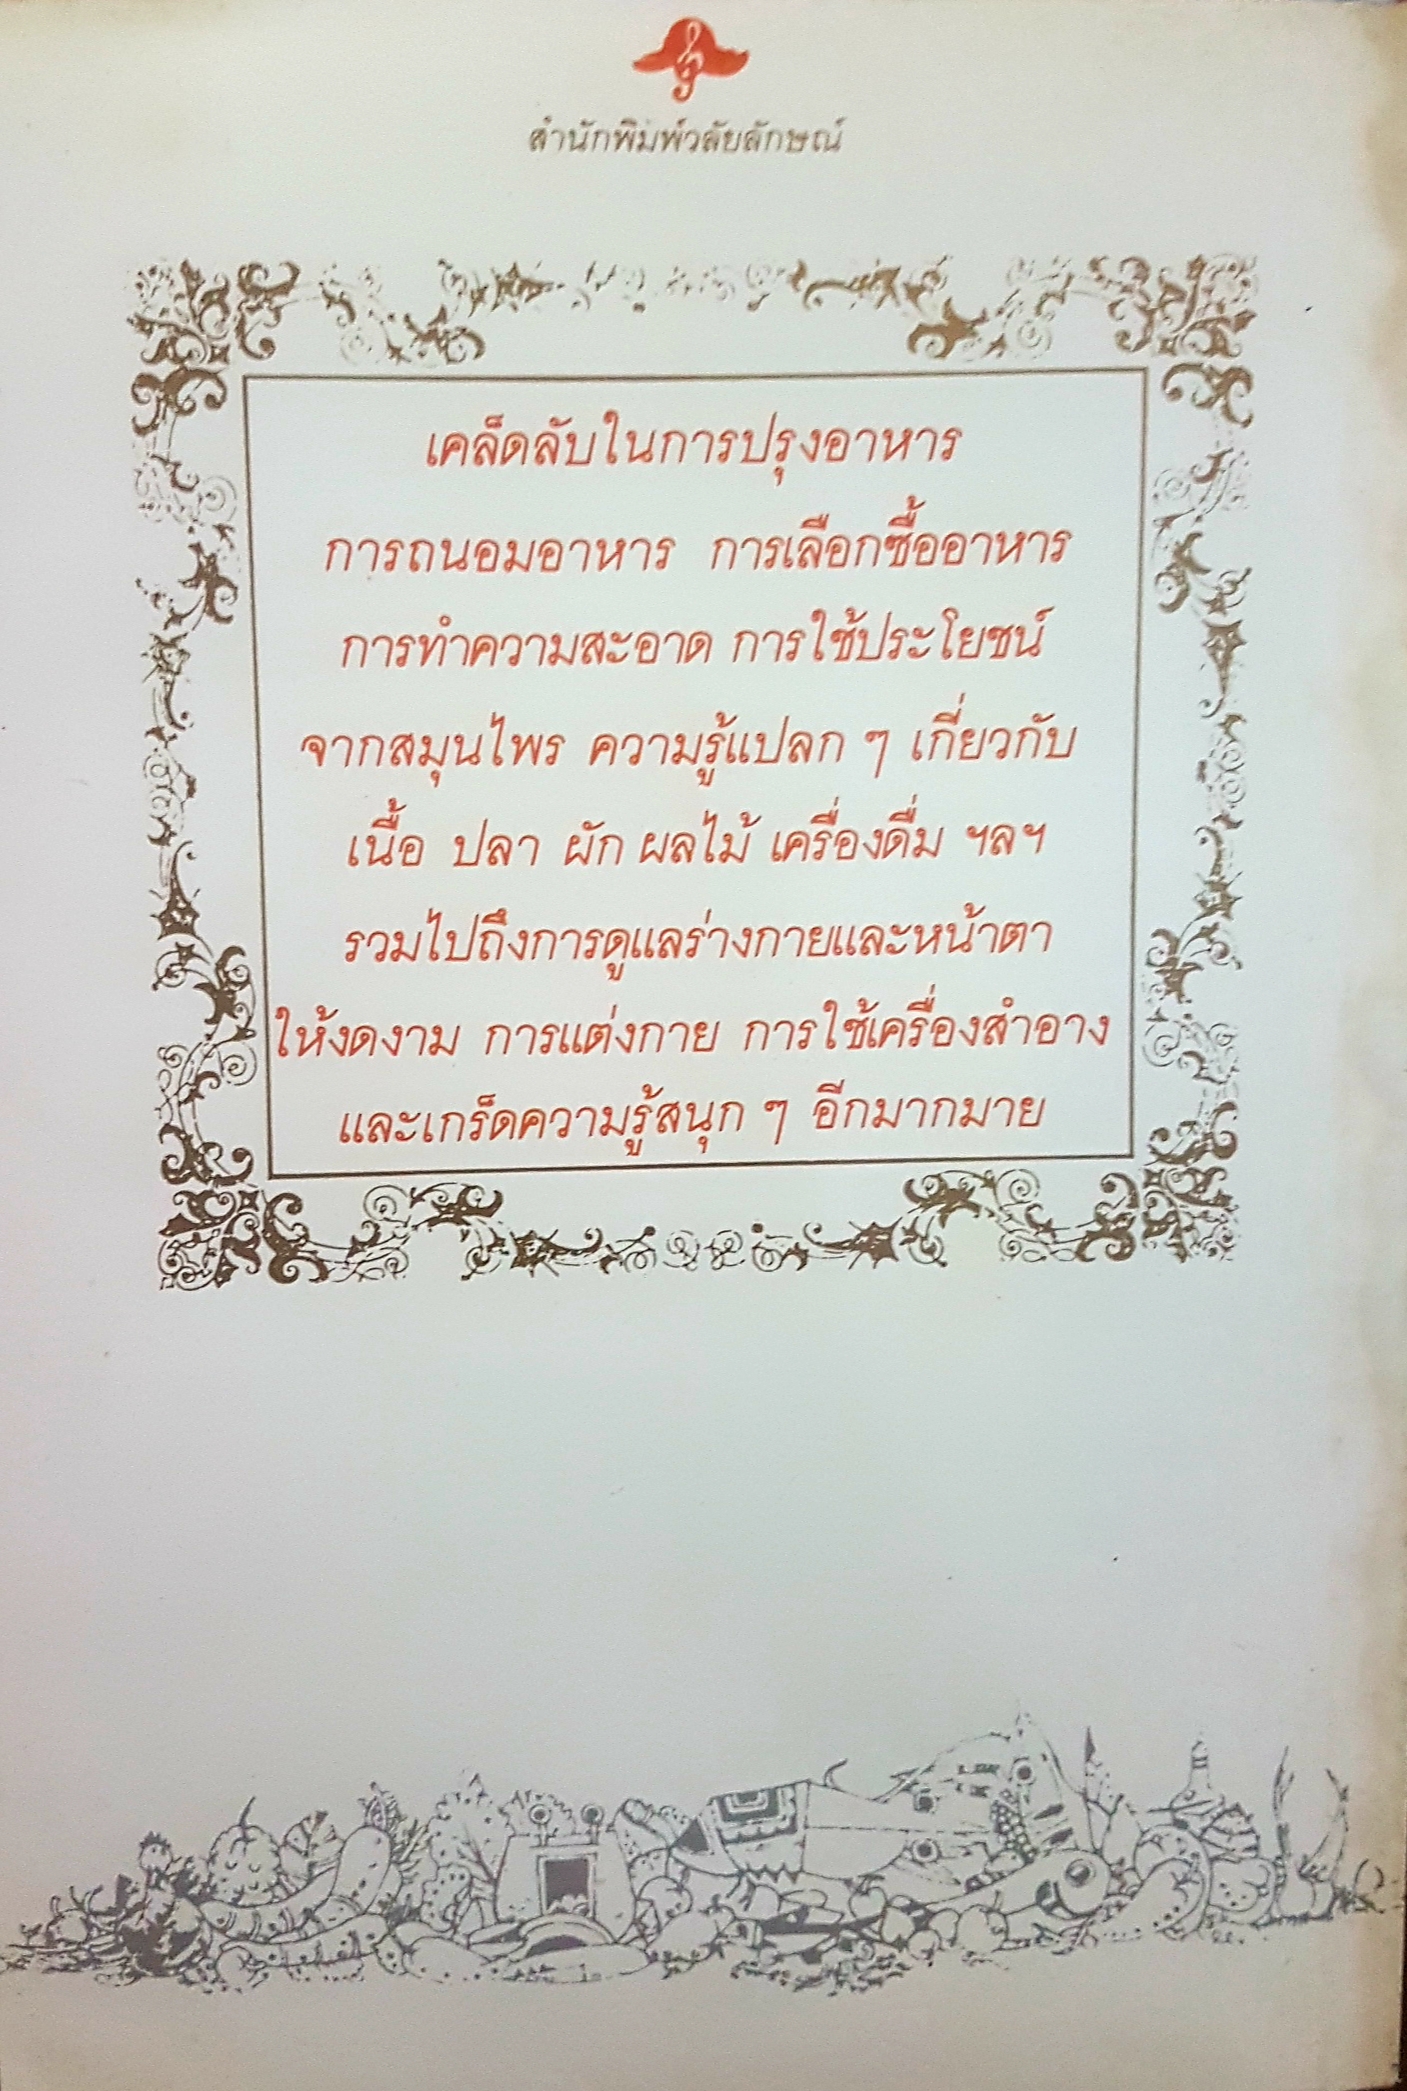 สำนักพิมพ์วลัยลักษณ์
เคล็ดลับในการปรุงอาหาร
การถนอมอาหาร การเลือกซื้ออาหาร
การทำความสะอาด การใช้ประโยชน์
จากสมุนไพร ความรู้แปลก ๆ เกี่ยวกับ
เนื้อ ปลา ผัก ผลไม้ เครื่องดื่ม ฯลฯ
รวมไปถึงการดูแลร่างกายและหน้าตา
ให้งดงาม การแต่งกาย การใช้เครื่องสำอาง
และเกร็ดความรู้สนุก ๆ อีกมากมาย